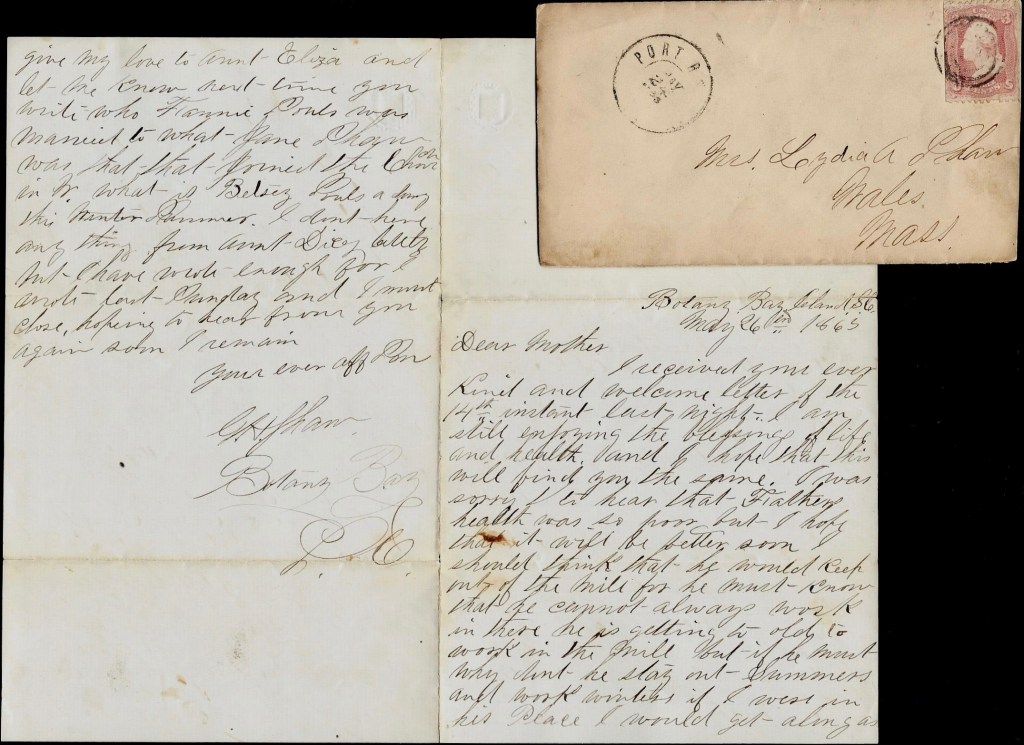 give my love to aunt Eliza and
let me know next time you
write who Fannie Pouls was
married to what Jane Shaw
was that that joined the
in W. what is Betsey Pouls a doing
this Summer. I dont here
any thing from aunt Dicey
but I have wrote enough for I
wrote last Sunday and I must
close, hoping to hear from you
again soon I remain
your ever aff Son
G H Shaw.
Botany Bay
S. C.
PORT R
MAY
Mrs. Lydia A Shaw
Wales.
Mass.
Botany Bay Island, S.C.
May 26th 1865
Dear Mother
I received your ever
Kind and welcome letter of the
14th instant last night. I am
still enjoying the blessings of life
and health, and I hope that this
will find you the same. I was
sorry to hear that Fathers
health was so poor but I hope
that it will be better soon I
should think that he would keep
out of the mill for he must know
that he cannot always work
in there he is getting to old to
work in the mill but if he must
why dont he stay out Summers
and work winters if I were in
his Place I would get along as